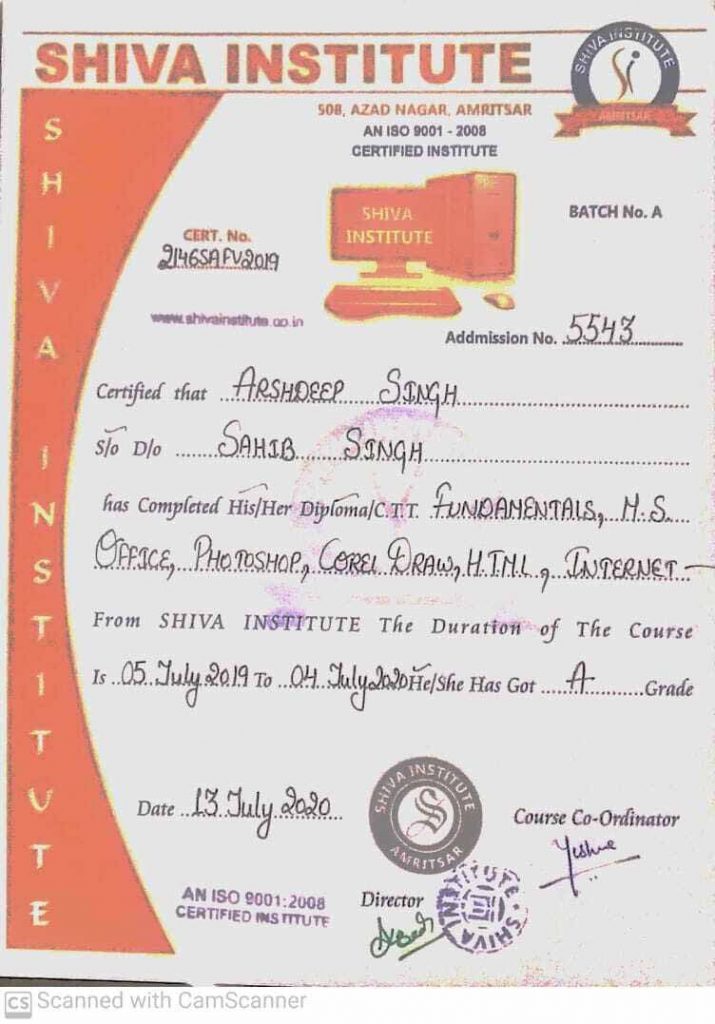 SHIVA INSTITUTE
SHIVA INSTITUTE
AMRITSAR
508, AZAD NAGAR, AMRITSAR
AN ISO 9001 - 2008
CERTIFIED INSTITUTE
SHIVA INSTITUTE
SHIVA
INSTITUTE
BATCH No. A
CERT. No.
2146SAFV2019
www.shivainstitute.co.in
Addmission No. 5543
Certified that ARSHDEEP SINGH
S/o D/o SAHIB SINGH
has Completed His/Her Diploma/C.T.T. FUNDAMENTALS, M.S.
OFFICE, PHOTOSHOP, COREL DRAW, H.T.M.L, INTERNET
From SHIVA INSTITUTE The Duration of The Course
Is 05 July 2019 To 04 July 2020 He/She Has Got A Grade
Date 13 July 2020
SHIVA INSTITUTE
AMRITSAR
Course Co-Ordinator
AN ISO 9001:2008
CERTIFIED INSTITUTE
Director
SHIVA INSTITUTE
CS Scanned with CamScanner